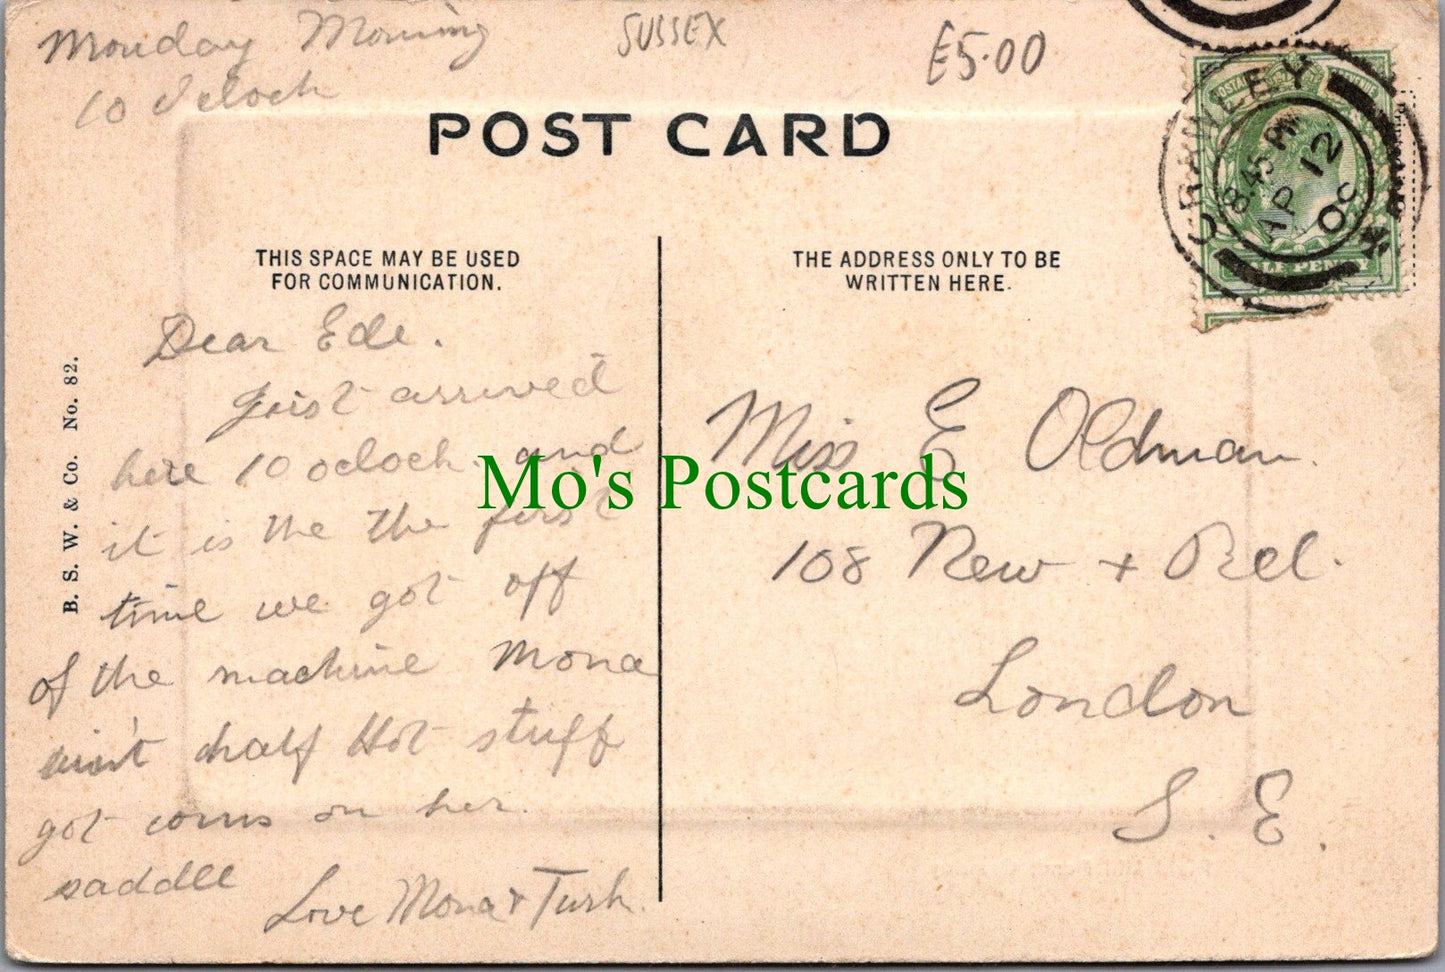 Monday Morning
10 oclock
SUSSEX
£5.00
POST CARD
THIS SPACE MAY BE USED
FOR COMMUNICATION.
THE ADDRESS ONLY TO BE
WRITTEN HERE.
CRAWLEY
845 PM
AP 12
POSTAGE REVENUE
HALF PENNY
B. S. W. & Co. No. 82.
Dear Ede.
just arrived
here 10 oclock and
it is the the first
time we got off
of the machine Mona
ain't half Hot stuff
got corns on her
saddle
Love Mona + Tush.
Miss E Oldman.
108 New + Rd.
London
S. E.
Mo's Postcards